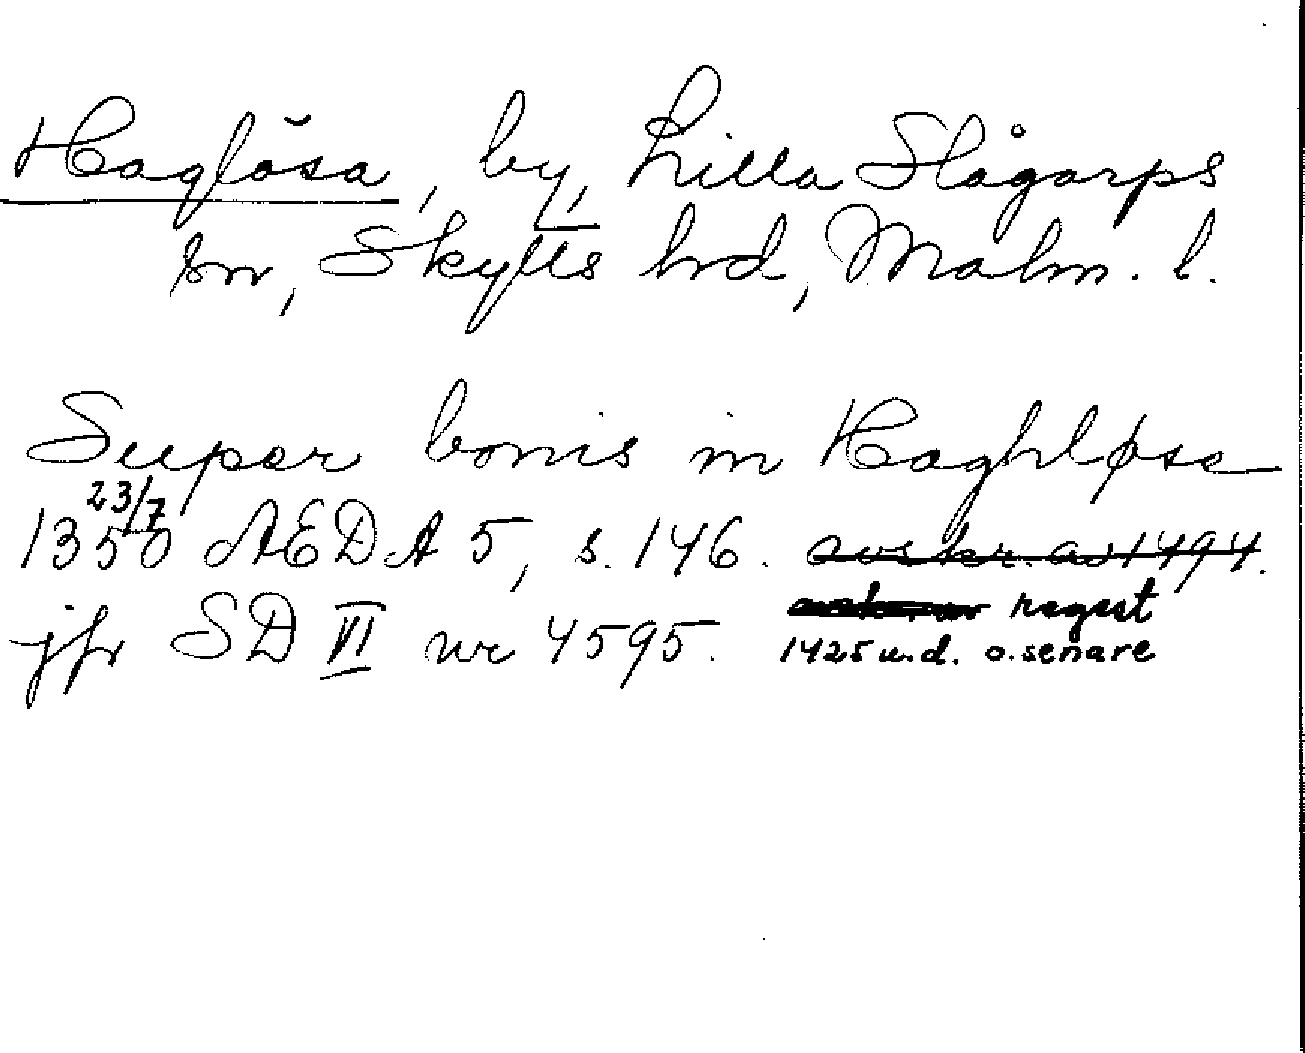 Haglösa, by, Lilla Slågarps
sn, Skytts hrd, Malm. l.
Super bonis in Haghløse
23/7
1350 AEDA 5, s. 146. avskr. av 1494.
regest
jfr SD VI nr 4595. 1425 u.d. o. senare